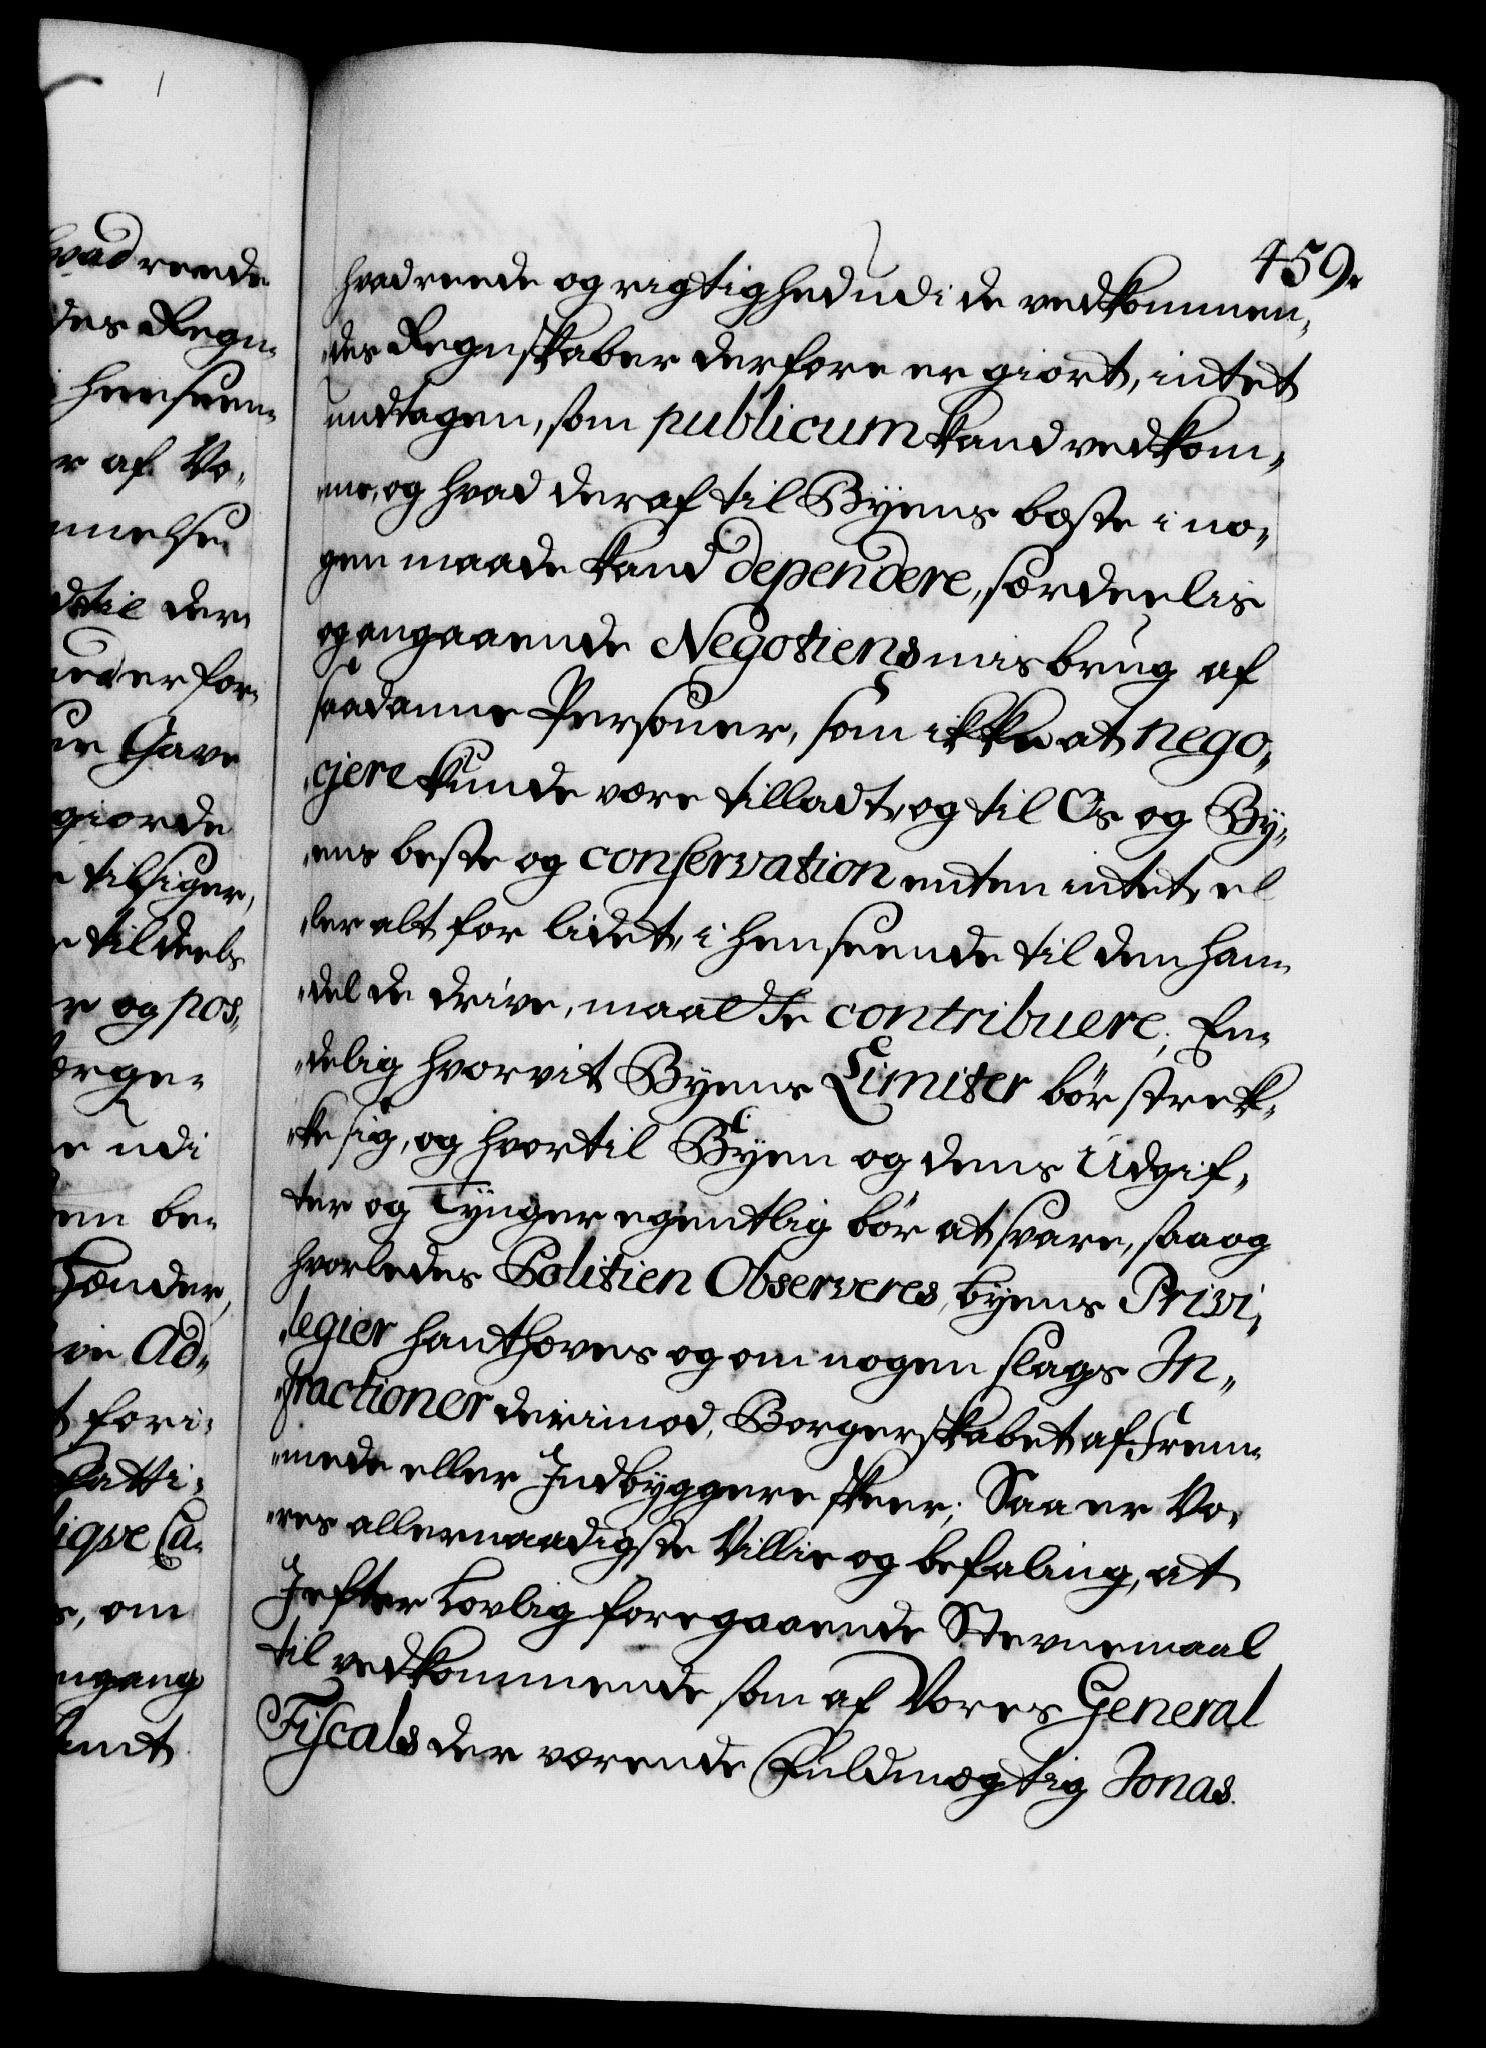 459.
hvad reede og rigtighed udi de vedkommen,
des Regnskaber derfore er giort, intet
undtagen, som publicum kand vedkom,
me, og hvad deraf til Byens bæste i no,
gen maade kand dependere, særdeelis
og angaaende Negotiens misbrug af
saadanne Personer, som ikke at nego,
cjere kunde være tilladt, og til Os og By,
ens beste og conservation enten intet, el
ler alt for lidet, i henseende til den han,
del de drive, maatte contribuere; En,
delig hvorvit Byens Limiter bör strek,
ke sig, og hvortil Byen og dens Udgif,
ter og Tynger egentlig bör at svare, saa og
hvorledes Politien Observeres, byens Privi,
legier hanthæves og om nogen slags In,
fractioner derimod, Borgerskabet af Frem,
mede eller Indbyggere skeer; Saa er Vo,
res allernaadigste Villie og befaling, at
I efter Lovlig foregaaende Stevnemaal
til vedkommende som af Vores General
Fiscals der værende Fuldmægtig Jonas.
hvad reede
des Regn,
henseen,
r af Vo,
melse
til der
er for,
Gave
giorde
tilsiger,
til deels
r og pos,
e udi
em be,
hænder,
ve Ad,
t fori,
, om
ngang